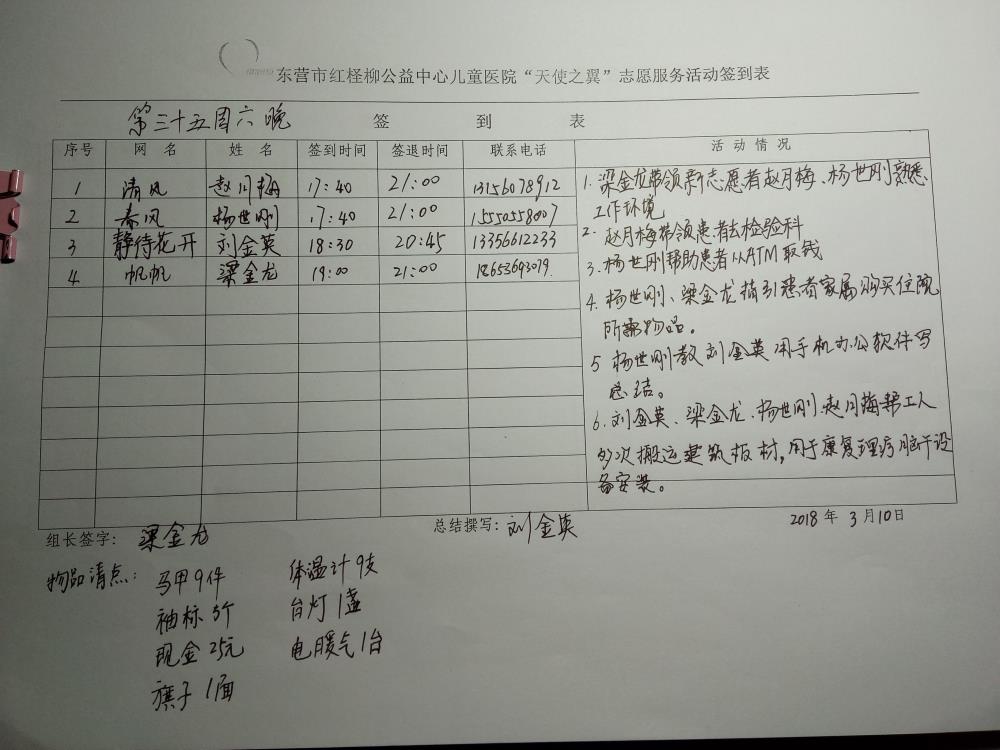 东营市红柽柳公益中心儿童医院“天使之翼”志愿服务活动签到表
第三十五周六晚 签 到 表
序号 网 名 姓 名 签到时间 签退时间 联系电话 活 动 情 况
1 清风 赵月梅 17:40 21:00 13156078912
2 春风 杨世刚 17:40 21:00 15550558007
3 静待花开 刘金英 18:30 20:45 13356612233
4 帆帆 梁金龙 19:00 21:00 18653693079
1. 梁金龙带领新志愿者赵月梅、杨世刚熟悉
工作环境
2. 赵月梅带领患者去检验科
3. 杨世刚帮助患者从ATM取钱
4. 杨世刚、梁金龙指引患者家属购买住院
所需物品。
5 杨世刚教刘金英用手机办公软件写
总结。
6. 刘金英、梁金龙、杨世刚、赵月梅帮工人
多次搬运建筑板材,用于康复理疗脑干设
备安装。
组长签字: 梁金龙 总结撰写: 刘金英 2018 年 3 月 10 日
物品清点: 马甲9件 体温计9支
袖标5个 台灯1盏
现金25元 电暖气1台
旗子1面